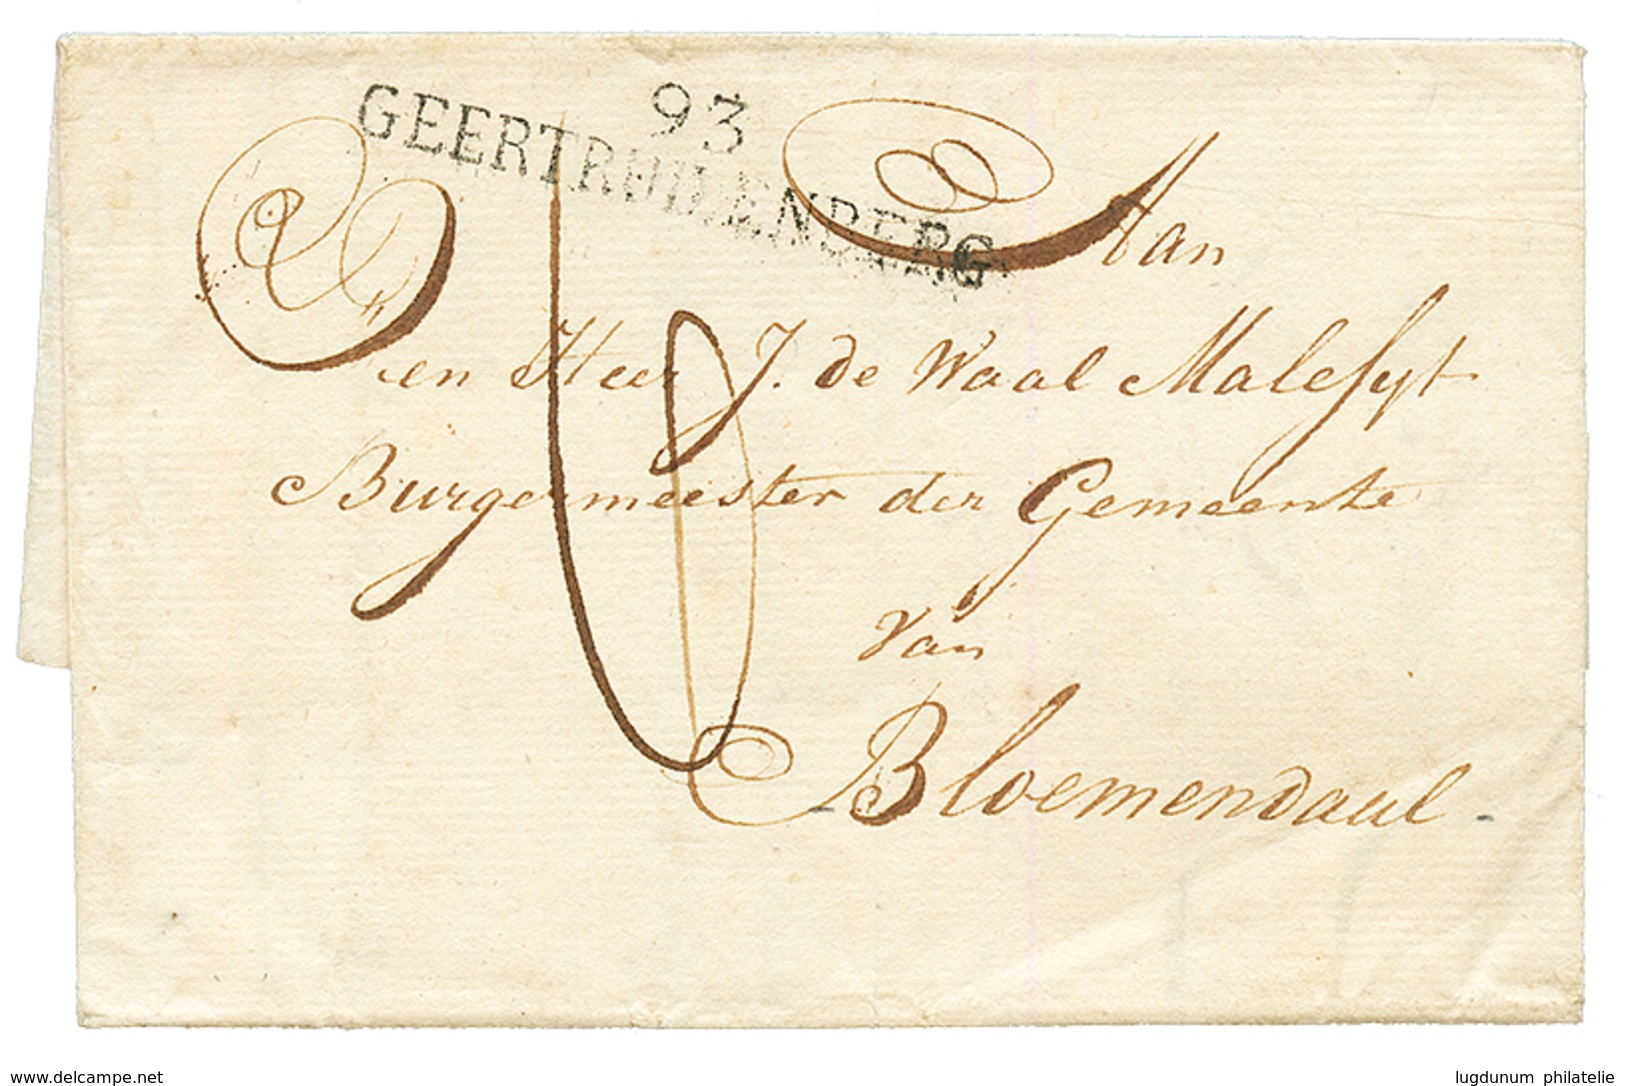 93
GEERTRUIDENBERG
Aan
Den Heer J. de Waal Malefyt
Burgermeester der Gemeente
Van
Bloemendaal
www.delcampe.net
lugdunum philatelie